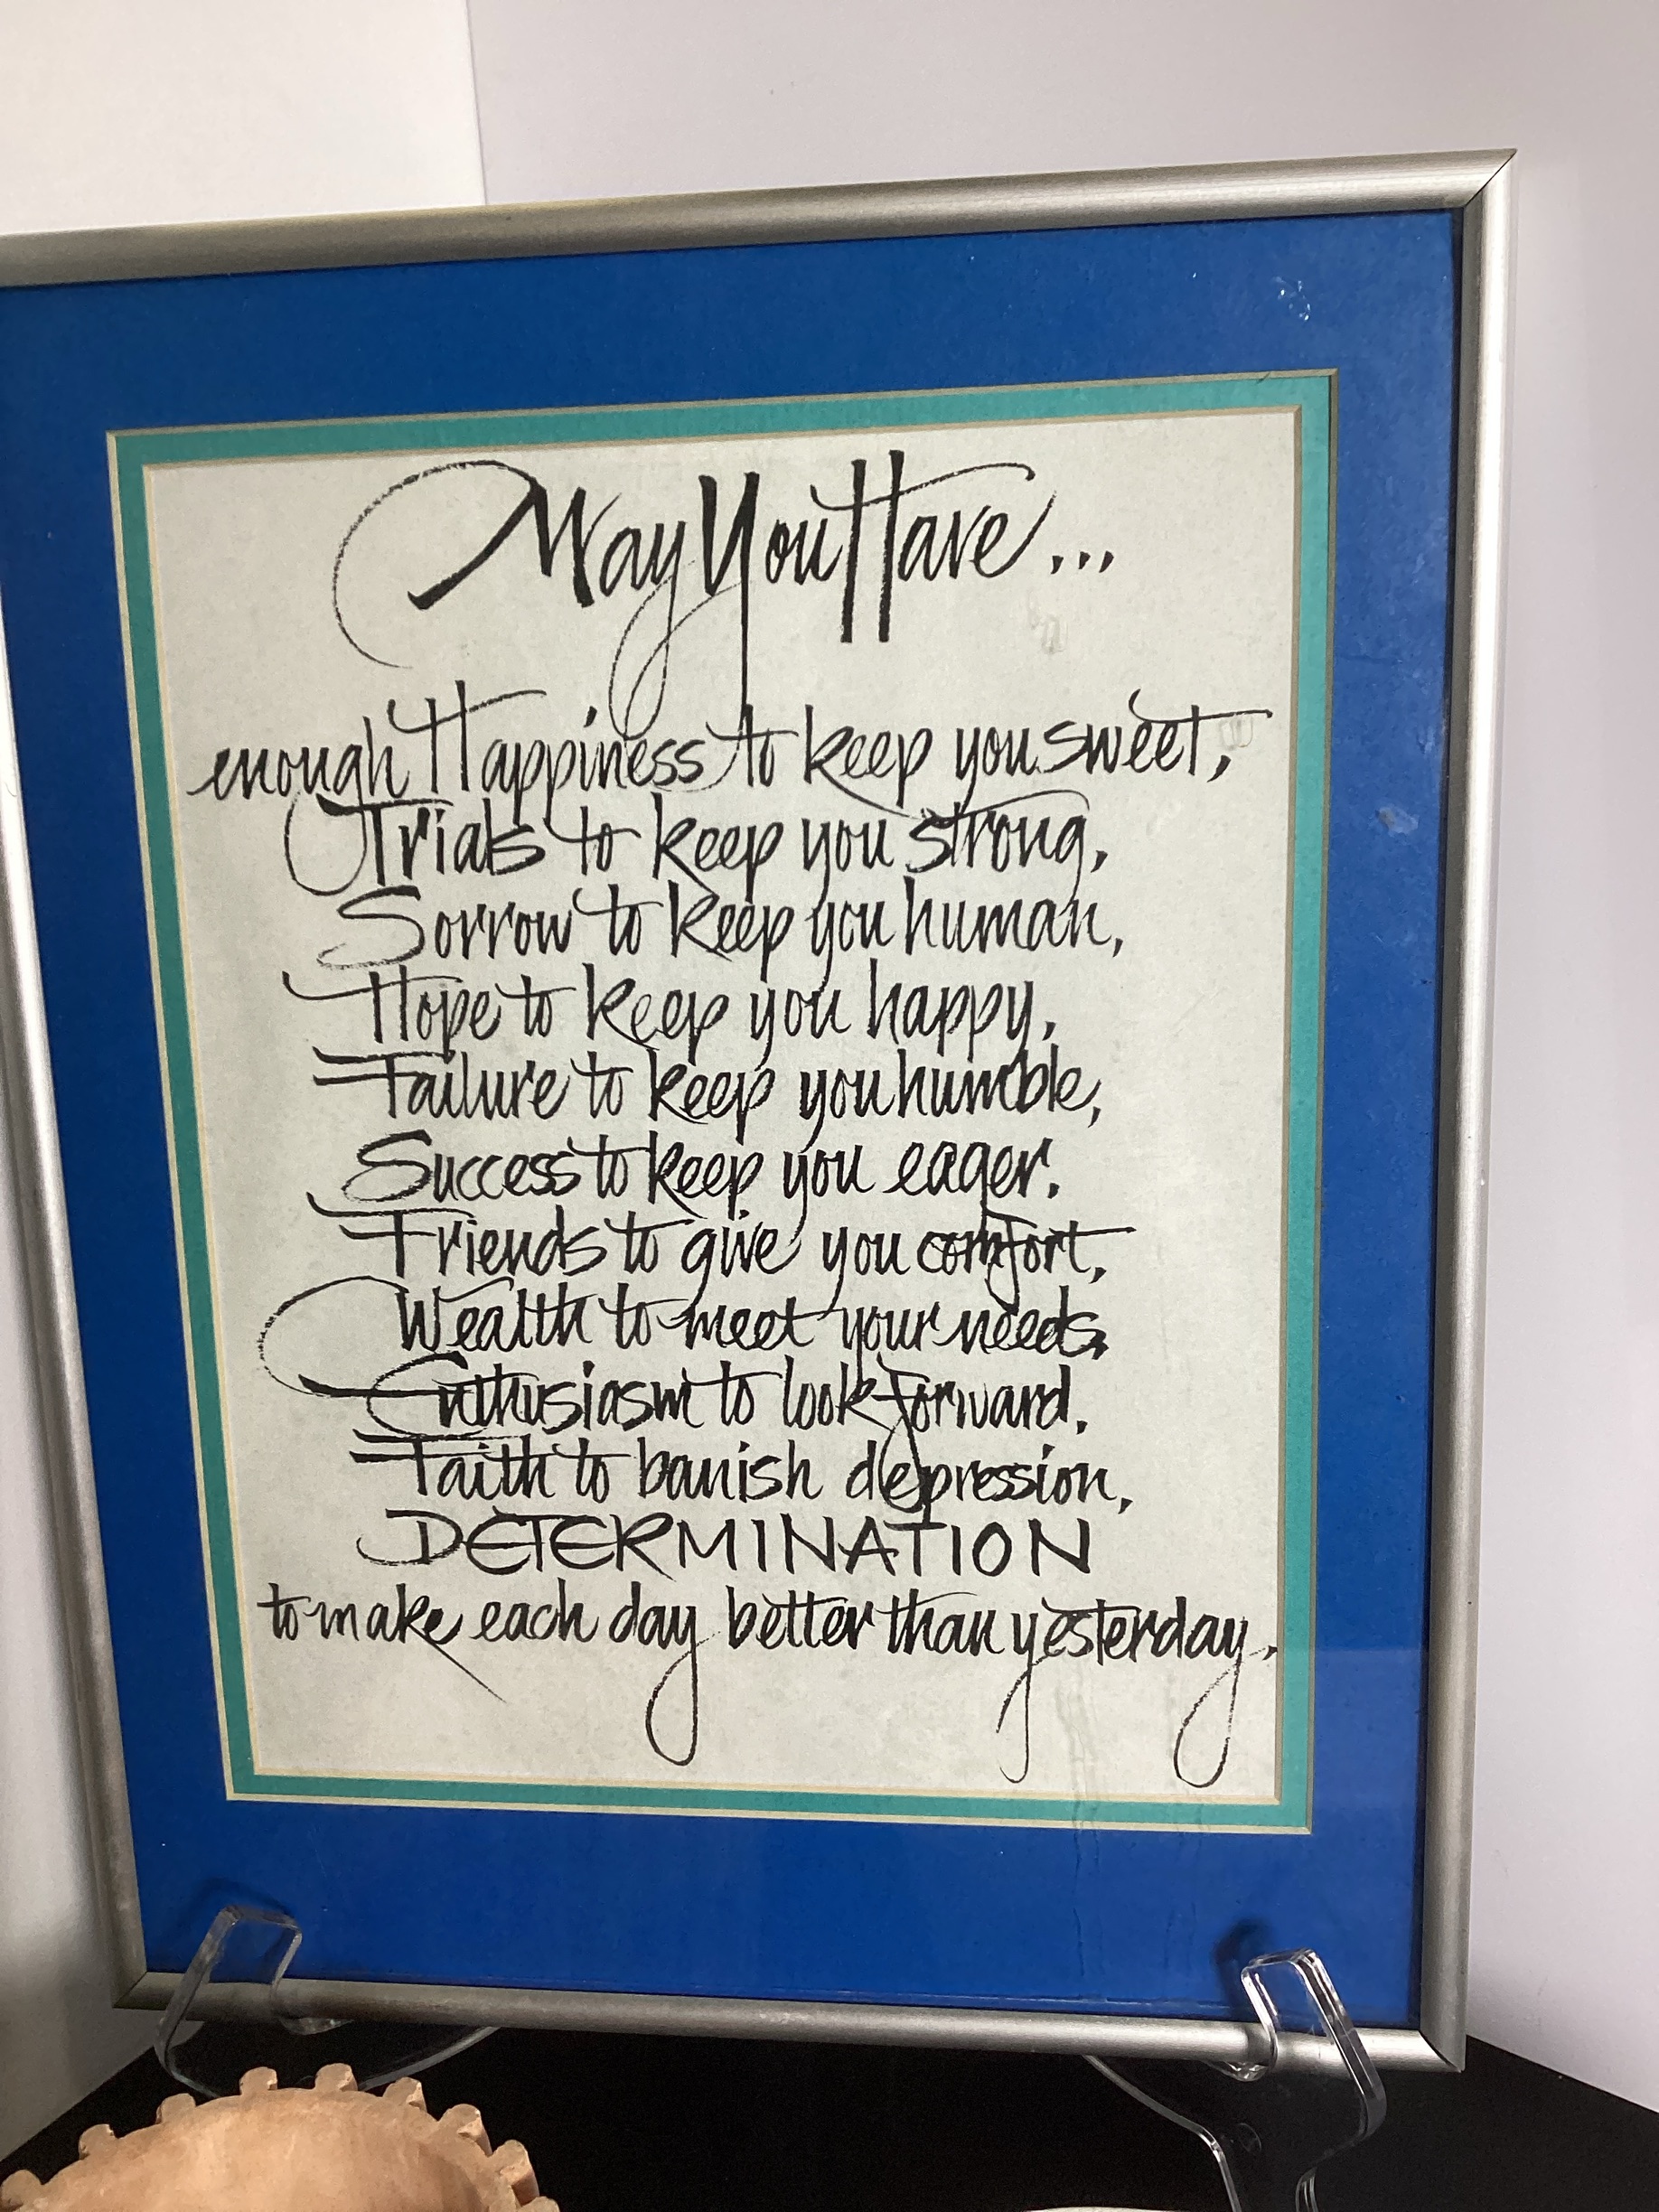 May You Have...
enough Happiness to keep you sweet,
Trials to keep you strong,
Sorrow to keep you human,
Hope to keep you happy,
Failure to keep you humble,
Success to keep you eager,
Friends to give you comfort,
Wealth to meet your needs,
Enthusiasm to look forward,
Faith to banish depression,
DETERMINATION
to make each day better than yesterday.